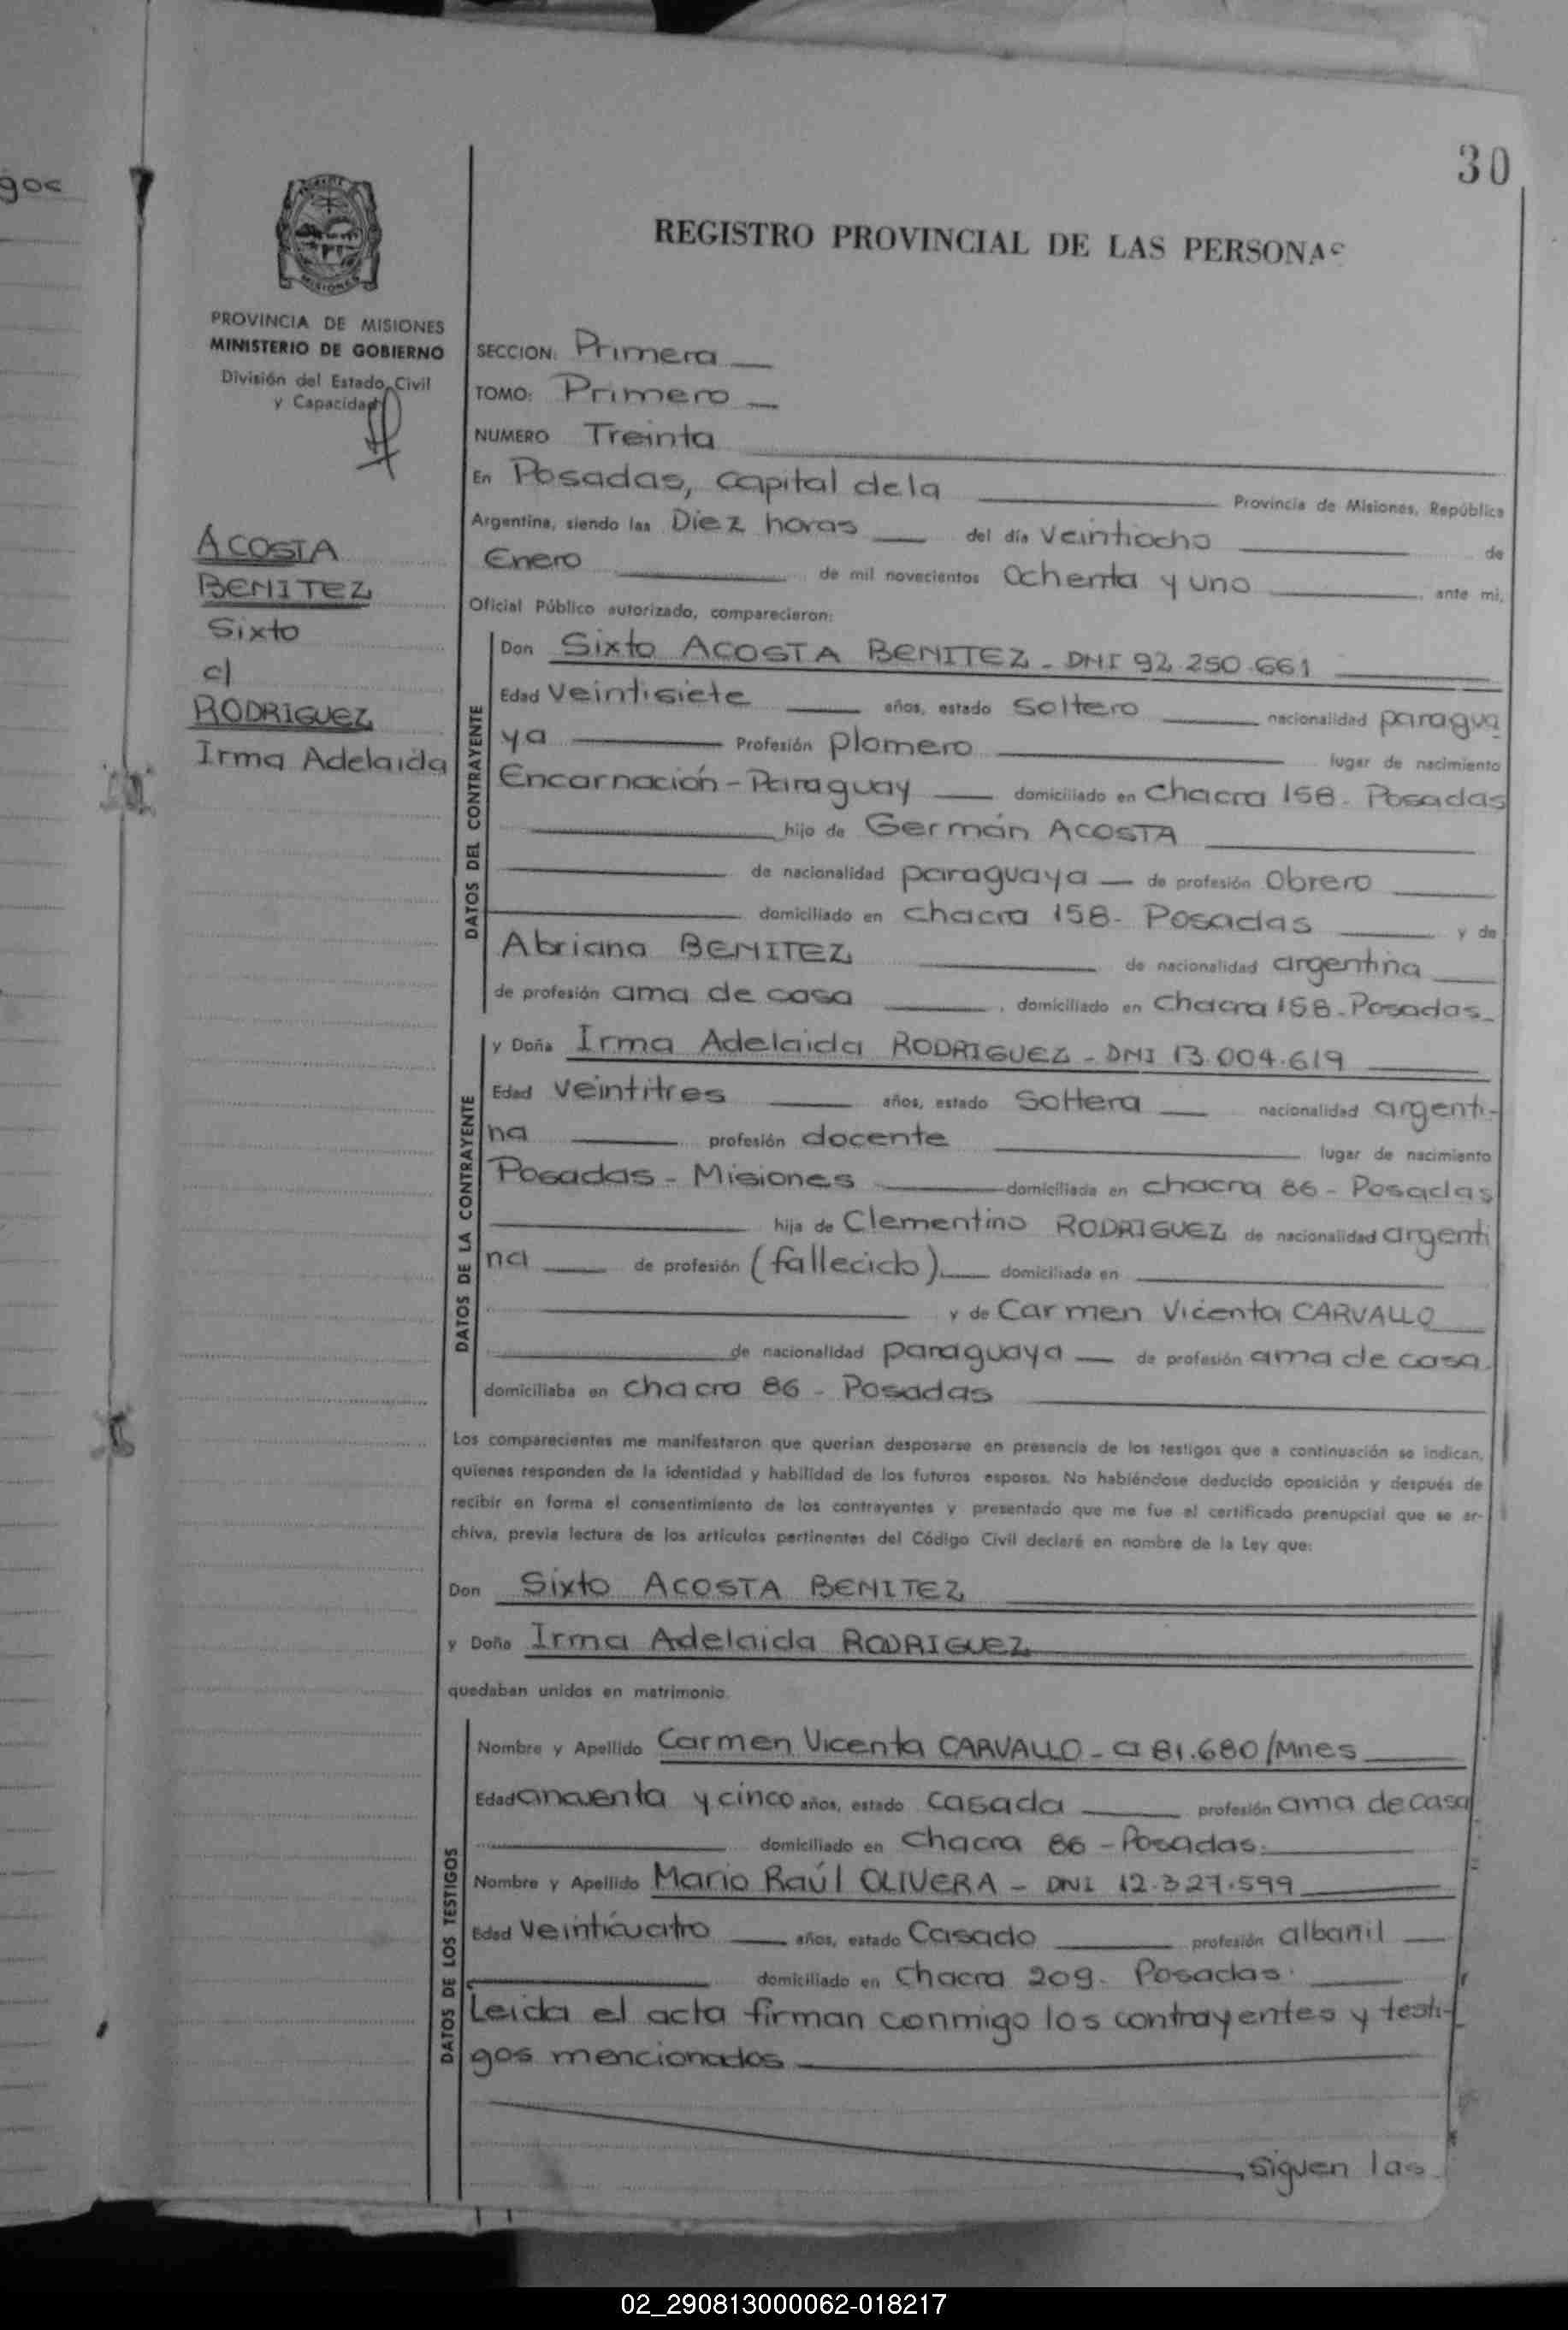 30
REGISTRO PROVINCIAL DE LAS PERSONAS
PROVINCIA DE MISIONES
MINISTERIO DE GOBIERNO
División del Estado Civil
y Capacidad
ACOSTA
BENITEZ
Sixto
c/
RODRIGUEZ
Irma Adelaida
SECCION: Primera
TOMO: Primero
NUMERO Treinta
En Posadas, capital de la Provincia de Misiones, República
Argentina, siendo las Diez horas del día veintiocho de
Enero de mil novecientos Ochenta y uno, ante mi,
Oficial Público autorizado, comparecieron:
DATOS DEL CONTRAYENTE
Don Sixto ACOSTA BENITEZ - DNI 92.250.661
Edad Veintisiete años, estado Soltero nacionalidad paragua
ya Profesión plomero lugar de nacimiento
Encarnación - Paraguay domiciliado en Chacra 158 - Posadas
hijo de Germán ACOSTA
de nacionalidad paraguaya de profesión Obrero
domiciliado en Chacra 158 - Posadas y de
Abriana BENITEZ de nacionalidad argentina
de profesión ama de casa, domiciliado en Chacra 158 - Posadas
DATOS DE LA CONTRAYENTE
y Doña Irma Adelaida RODRIGUEZ - DNI 13.004.619
Edad Veintitres años, estado Soltera nacionalidad argenti-
na profesión docente lugar de nacimiento
Posadas - Misiones domiciliada en chacra 86 - Posadas
hija de Clementino RODRIGUEZ de nacionalidad argenti
na de profesión (fallecido) domiciliada en
y de Carmen Vicenta CARVALLO
de nacionalidad paraguaya de profesión ama de casa.
domiciliaba en chacra 86 - Posadas
Los comparecientes me manifestaron que querian desposarse en presencia de los testigos que a continuación se indican,
quienes responden de la identidad y habilidad de los futuros esposos. No habiéndose deducido oposición y después de
recibir en forma el consentimiento de los contrayentes y presentado que me fue el certificado prenupcial que se ar-
chiva, previa lectura de los artículos pertinentes del Código Civil declaré en nombre de la Ley que:
Don Sixto ACOSTA BENITEZ
y Doña Irma Adelaida RODRIGUEZ
quedaban unidos en matrimonio.
DATOS DE LOS TESTIGOS
Nombre y Apellido Carmen Vicenta CARVALLO - CI 81.680/Mnes
Edad Cincuenta y cinco años, estado casada profesión ama de casa
domiciliado en Chacra 86 - Posadas.
Nombre y Apellido Mario Raúl OLIVERA - DNI 12.327.599
Edad Veinticuatro años, estado Casado profesión albañil
domiciliado en Chacra 209 - Posadas.
Leida el acta firman conmigo los contrayentes y testi-
gos mencionados
siguen las
gos
02_290813000062-018217